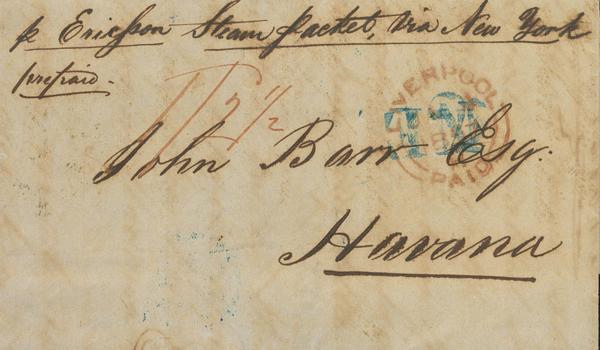 p Ericsson Steam packet, via New York
prepaid.
1/5 1/2
LIVERPOOL
PAID
John Barr Esq:
Havana